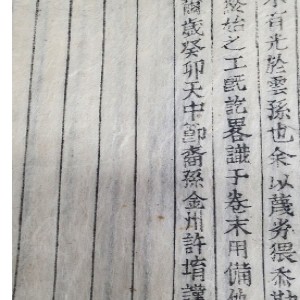 有光於雲孫也余以蔑劣猥忝
終始之工旣訖畧識于卷末用備
歲癸卯天中節裔孫金州許堉謹